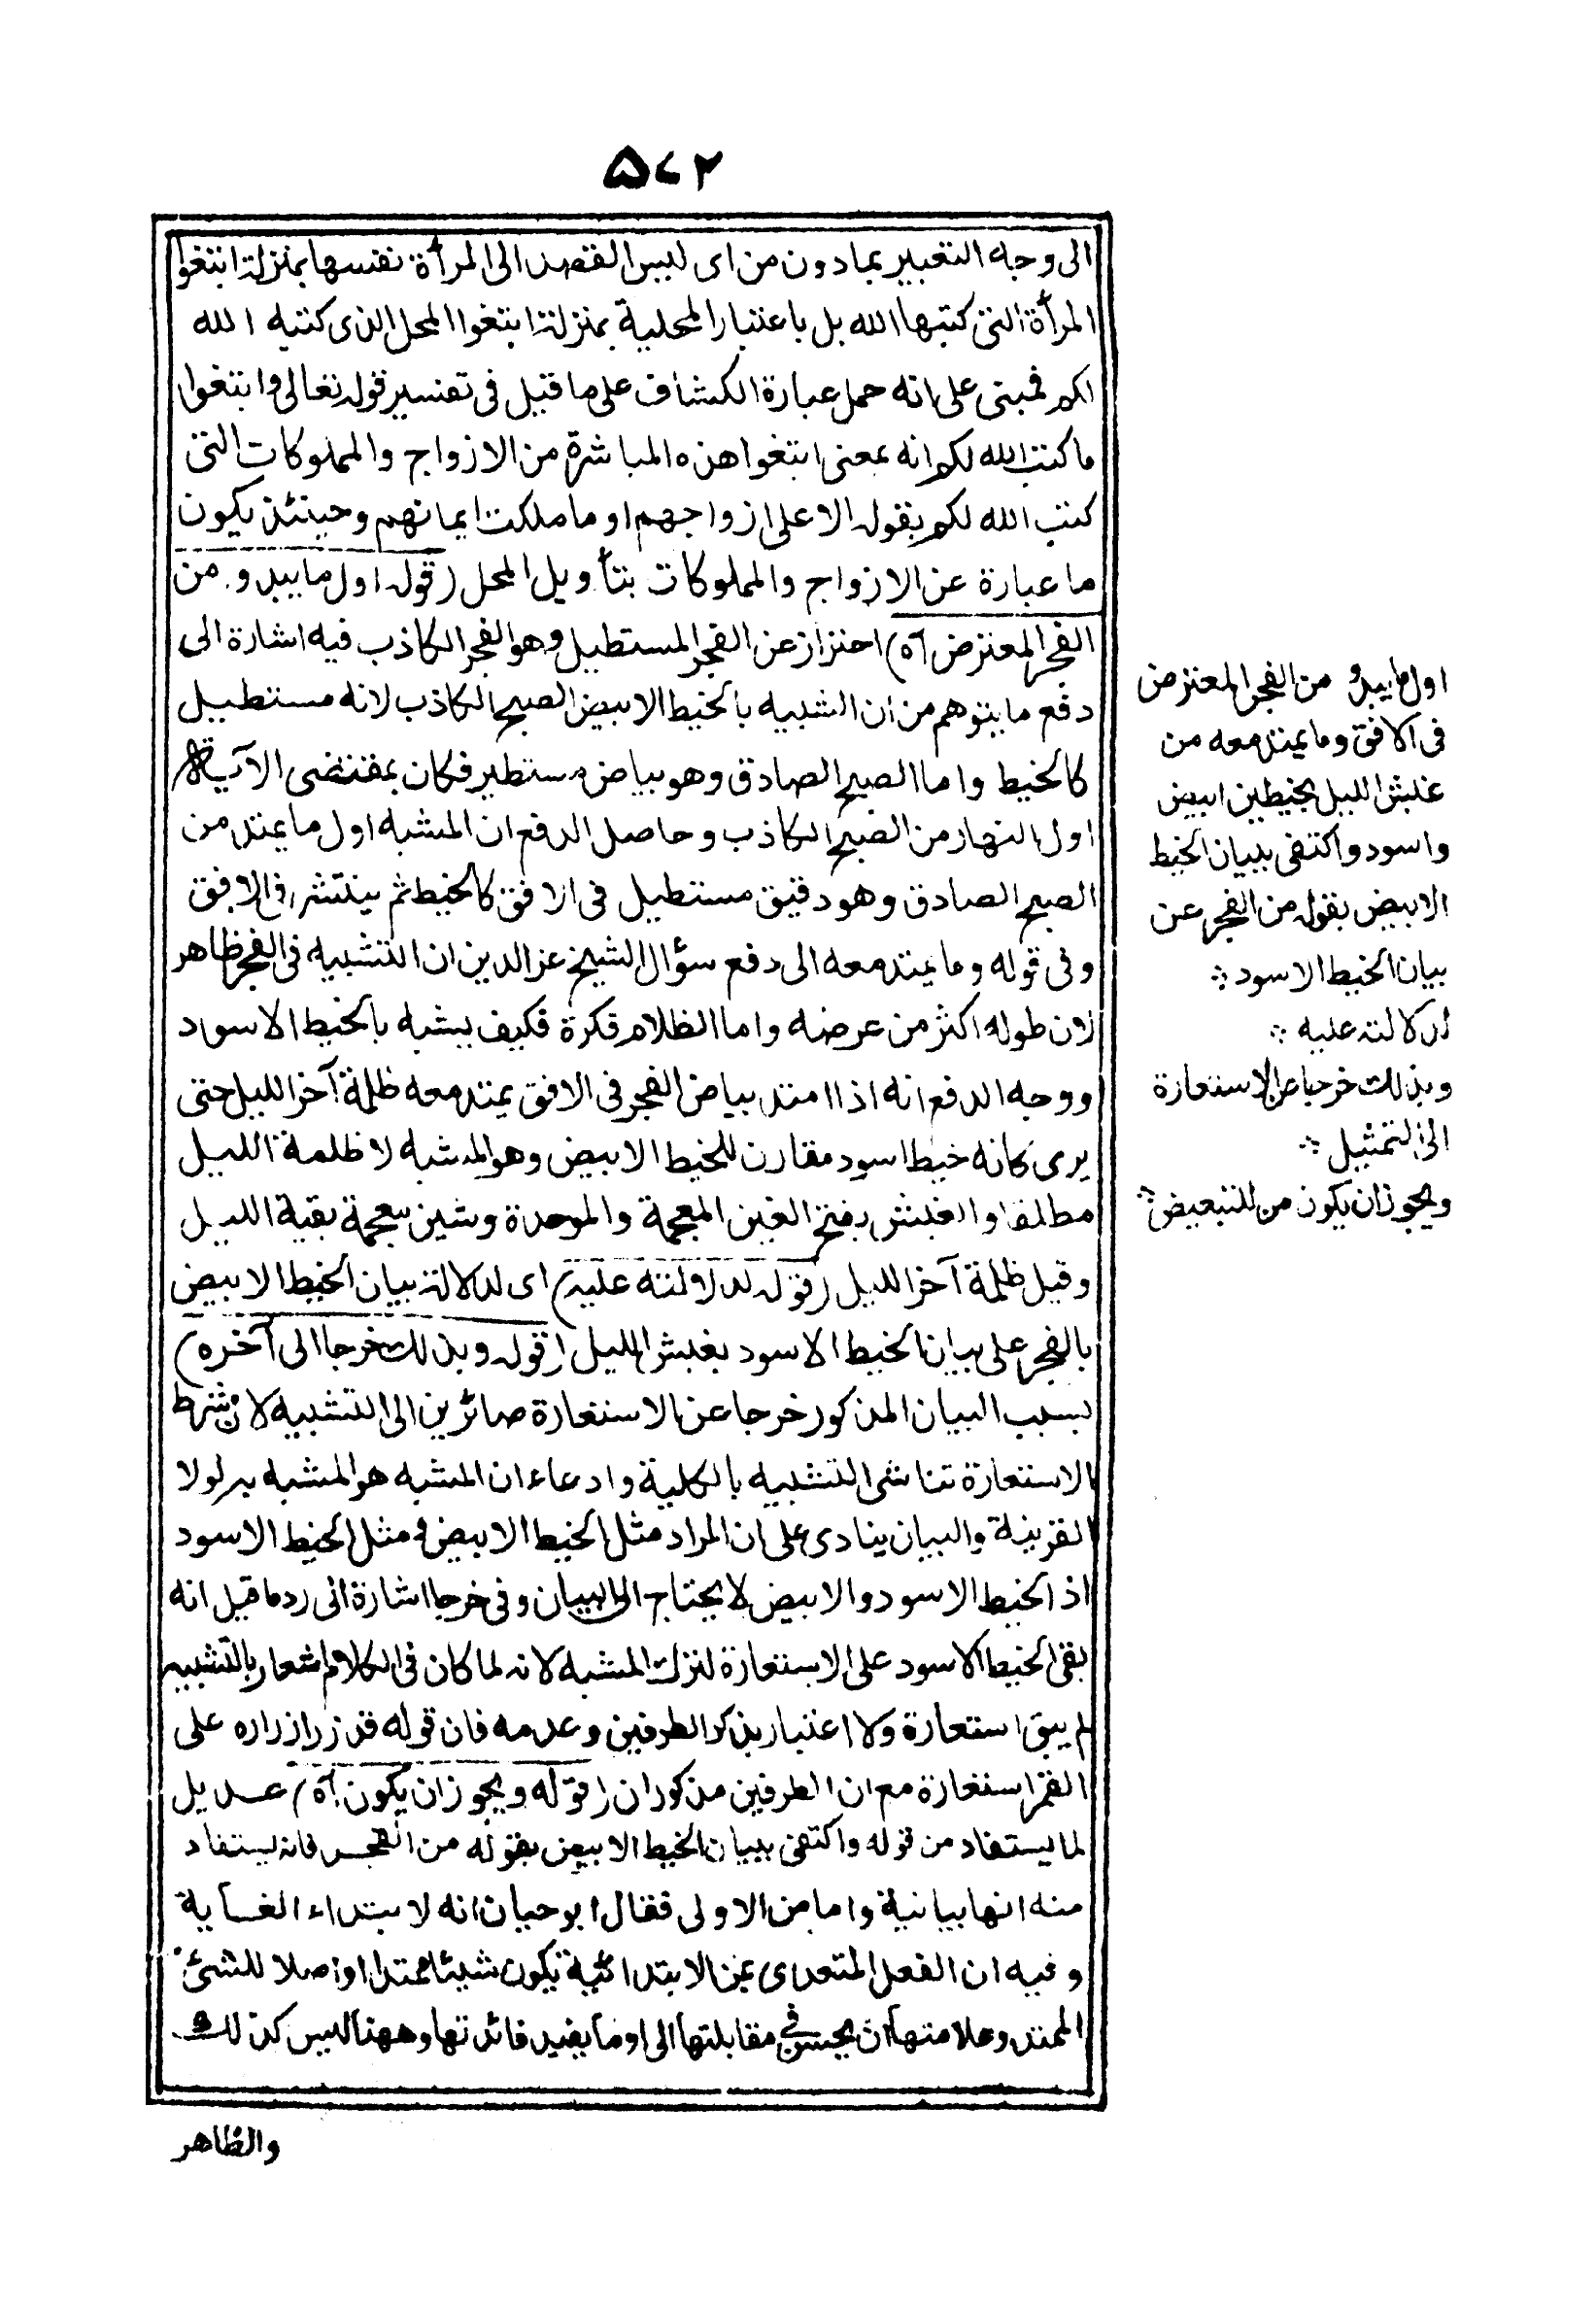 ۵۷۲
الى وجه التعبير بمادون من اى ليس القصد الى المرأة نفسها بمنزلة ابتغوا
المرأة التى كتبها الله بل باعتبار المحلية بمنزلة ابتغوا المحل الذى كتبه الله
لكم فمبنى على انه حمل عبارة الكشاف على ما قيل فى تفسير قوله تعالى وابتغوا
ما كتب الله لكم انه بمعنى ابتغوا هذه المباشرة من الازواج والمملوكات التى
كتب الله لكم بقوله الا على ازواجهم او ما ملكت ايمانهم وحينئذ يكون
ما عبارة عن الازواج والمملوكات بتأويل المحل (قوله اول ما يبدو من
الفجر المعترض آه) احتراز عن الفجر المستطيل وهو الفجر الكاذب فيه اشارة الى
دفع ما يتوهم من ان الشبيه بالخيط الابيض الصبح الكاذب لانه مستطيل
كالخيط واما الصبح الصادق وهو بياض مستطير فكان بمقتضى الآية
اول النهار من الصبح الكاذب وحاصل الدفع ان المشبه اول ما يمتد من
الصبح الصادق وهو دقيق مستطيل فى الافق كالخيط ثم ينتشر فى الافق
وفى قوله وما يمتد معه الى دفع سؤال الشيخ عز الدين ان التشبيه فى الفجر ظاهر
لان طوله اكثر من عرضه واما الظلام فكرة فكيف يشبه بالخيط الاسود
ووجه الدفع انه اذا امتد بياض الفجر فى الافق يمتد معه ظلمة آخر الليل حتى
يرى كانه خيط اسود مقارن للخيط الابيض وهو المشبه لا ظلمة الليل
مطلقا والغبش بفتح الغين المعجمة والموحدة وشين معجمة بقية الليل
وقيل ظلمة آخر الليل (قوله لدلالته عليه) اى لدلالة بيان الخيط الابيض
بالفجر على بيان الخيط الاسود بغبش الليل (قوله وبذلك خرجا الى آخره)
بسبب البيان المذكور خرجا عن الاستعارة صائرين الى التشبيه لان شرط
الاستعارة تناسى التشبيه بالكلية وادعاء ان المشبه هو المشبه به لولا
القرينة والبيان ينادى على ان المراد مثل الخيط الابيض ومثل الخيط الاسود
اذ الخيط الاسود والابيض لا يحتاج الى البيان وفى خرجا اشارة الى رد ما قيل انه
بقى الخيط الاسود على الاستعارة لترك المشبه لانه لما كان فى الكلام اشعار بالتشبيه
لم يبق استعارة ولا اعتبار بذكر الطرفين وعدمه فان قوله قد زر ازراره على
القمر استعارة مع ان الطرفين مذكوران (قوله ويجوز ان يكون آه) عديل
لما يستفاد من قوله واكتفى ببيان الخيط الابيض بقوله من الفجر فانه يستفاد
منه انها بيانية واما من الاولى فقال ابو حيان انه لابتداء الغاية
وفيه ان الفعل المتعدى بمن الابتدائية يكون شيئا ممتدا او اصلا للشئ
الممتد وعلامتها ان يحسن فى مقابلتها الى او ما يفيد فائدتها وههنا ليس كذلك
والظاهر
اول ما يبدو من الفجر المعترض
فى الافق وما يمتد معه من
غبش الليل بخيطين ابيض
واسود واكتفى ببيان الخيط
الابيض بقوله من الفجر عن
بيان الخيط الاسود
لدلالته عليه
وبذلك خرجا عن الاستعارة
الى التمثيل
ويجوز ان يكون من للتبعيض